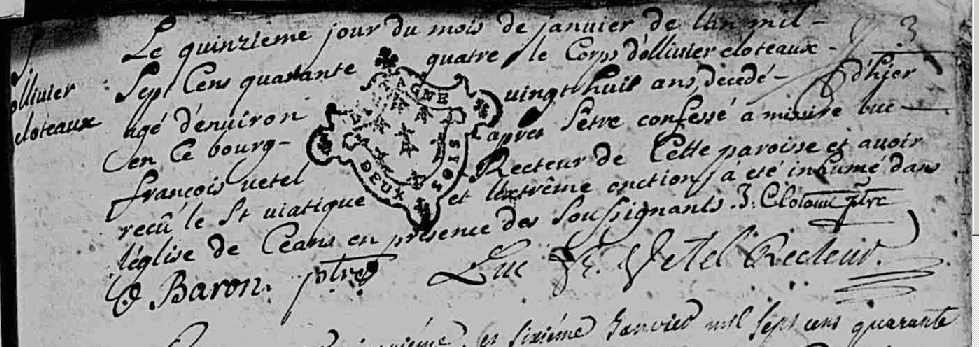 ollivier
cloteaux
3
Le quinzieme jour du mois de janvier de lan mil -
Sept Cens quarante quatre le Corps dollivier cloteaux -
agé denviron vingt huit ans, décedé - d'hjer
en Ce bourg - apres Setre confessé a missire luc
françois vetel Recteur de Cette paroise et avoir
recû le St viatique et lextréme onction, a été inhumé dans
léglise de Ceans en présence des Soussignants. J. Clotoux ptre
Baron. ptre Luc Fr. Vetel Recteur.
AGNE
DEUX SOLS
sixiéme Janvier mil sept cens quarante